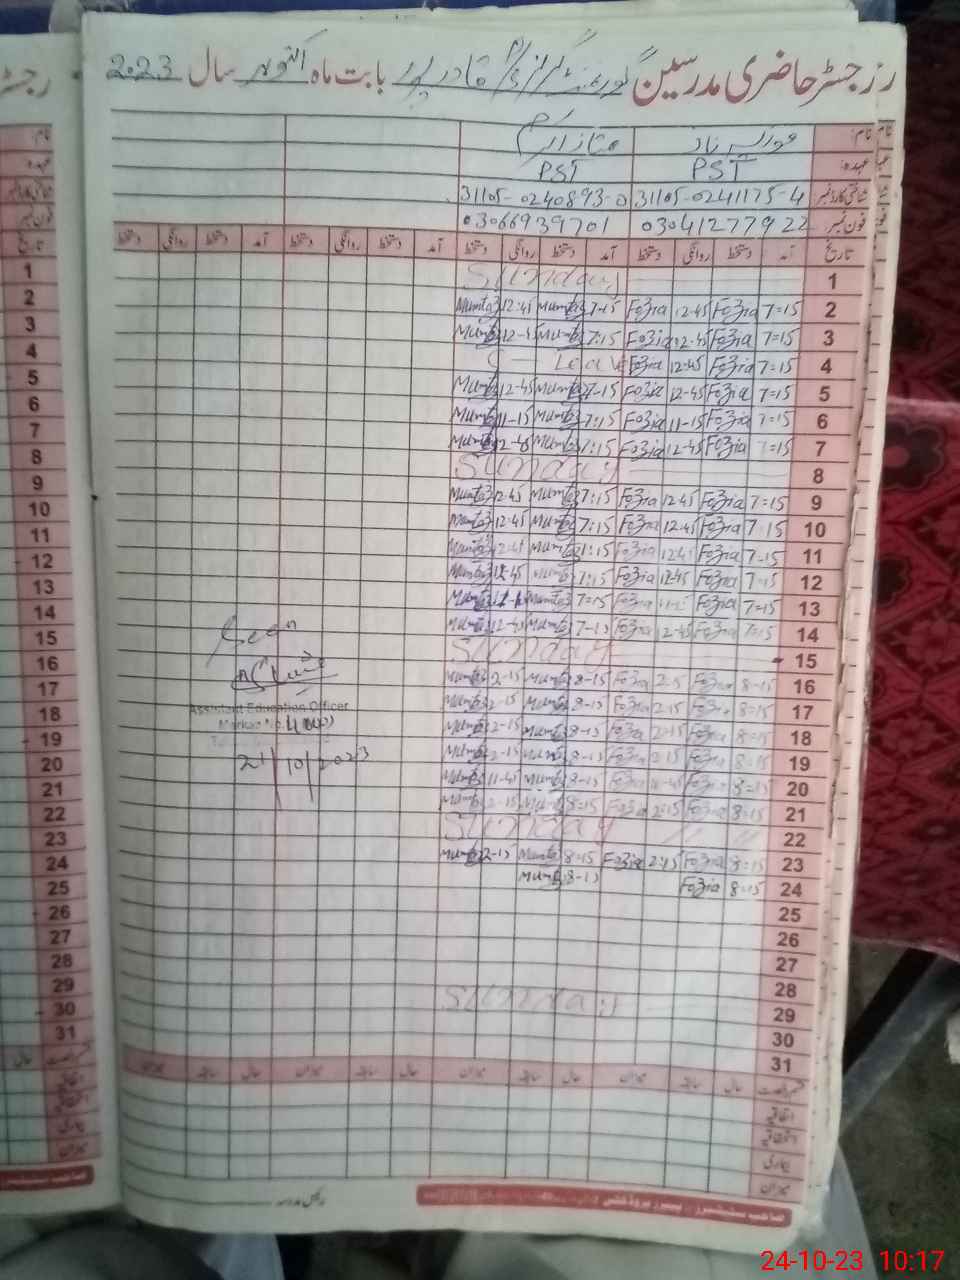 رجسٹر حاضری مدرسین گورنمنٹ گرلز بابت ماہ اکتوبر سال 2023
نام: فوزیہ ناز ممتاز اکرم
عہدہ: PST PST
شناختی کارڈ نمبر 31105-0241175-4 31105-0240893-0
فون نمبر 03041277922 03066939701
تاریخ آمد دستخط روانگی دستخط آمد دستخط روانگی دستخط آمد دستخط روانگی دستخط آمد دستخط روانگی دستخط
1 Sunday 1
2 7=15 Fozia 12-45 Fozia 7-15 Mumtaz 12:45 Mumtaz 2
3 7=15 Fozia 12-45 Fozia 7:15 Mumtaz 12-45 Mumtaz 3
4 7=15 Fozia 12-45 Fozia Leave 4
5 7=15 Fozia 12-45 Fozia 7-15 Mumtaz 12-45 Mumtaz 5
6 7=15 Fozia 11-15 Fozia 7:15 Mumtaz 11-15 Mumtaz 6
7 7=15 Fozia 12-45 Fozia 7:15 Mumtaz 12-45 Mumtaz 7
8 Sunday 8
9 7=15 Fozia 12-45 Fozia 7:15 Mumtaz 12-45 Mumtaz 9
10 7-15 Fozia 12-45 Fozia 7:15 Mumtaz 12-45 Mumtaz 10
11 7-15 Fozia 12-45 Fozia Mumtaz 12-45 Mumtaz 11
12 7-15 Fozia 12-45 Fozia 7:15 Mumtaz 12-45 Mumtaz 12
13 7=15 Fozia Fozia 7=15 Mumtaz Mumtaz 13
14 7=15 Fozia 12-45 Fozia 7-15 Mumtaz 12-45 Mumtaz 14
15 Sunday 15
16 8-15 Fozia Fozia 8-15 Mumtaz 2-15 Mumtaz 16
17 8=15 Fozia 2-15 Fozia 8-15 Mumtaz 2-15 Mumtaz 17
18 8=15 Fozia 2-15 Fozia 8-15 Mumtaz 2-15 Mumtaz 18
19 8=15 Fozia 2-15 Fozia 8-15 Mumtaz 2-15 Mumtaz 19
20 8=15 Fozia 11-45 Fozia 8-15 Mumtaz 11-45 Mumtaz 20
21 8=15 Fozia 2:15 Fozia 8=15 Mumtaz 2-15 Mumtaz 21
22 Sunday 22
23 8=15 Fozia 2:15 Fozia 8=15 Mumtaz 2-15 Mumtaz 23
24 8=15 Fozia 8-15 Mumtaz 24
25 25
26 26
27 27
28 28
29 Sunday 29
30 30
31 31
Seen
Assistant Education Officer
Markaz No.
21/10/2023
حال سابقہ میزان حال سابقہ میزان حال سابقہ میزان حال سابقہ میزان
اتفاقیہ
استحقاقیہ
بیماری
میزان
رئیس مدرسہ
24-10-23 10:17